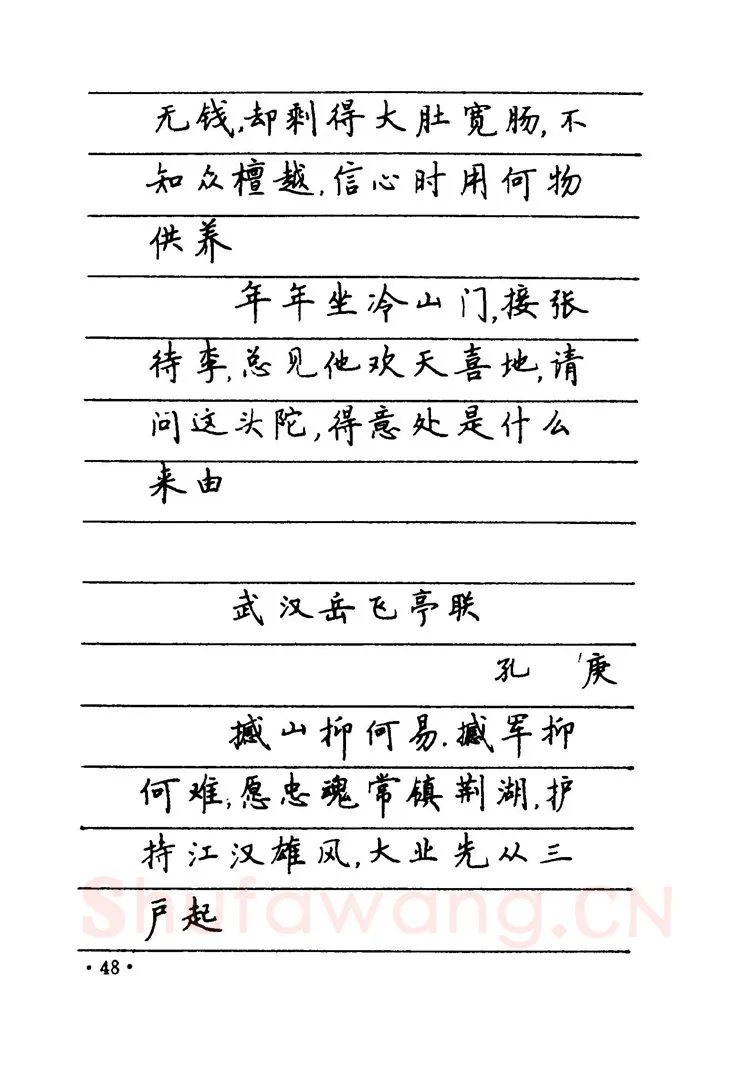 无钱,却剩得大肚宽肠,不
知众檀越,信心时用何物
供养
年年坐冷山门,接张
待李,总见他欢天喜地,请
问这头陀,得意处是什么
来由
武汉岳飞亭联
孔 庚
撼山抑何易.撼军抑
何难,愿忠魂常镇荆湖,护
持江汉雄风,大业先从三
户起
Shufawang.CN
·48·